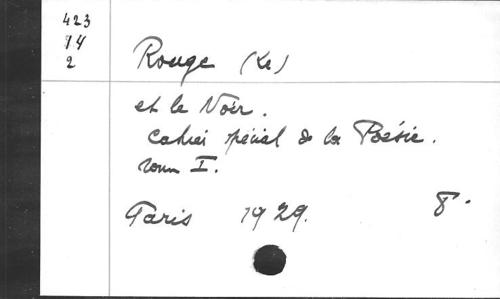 423
14
2
Rouge (Le)
et le Noir.
Cahier spécial de la Poésie.
I.
Paris 1929. 8°.